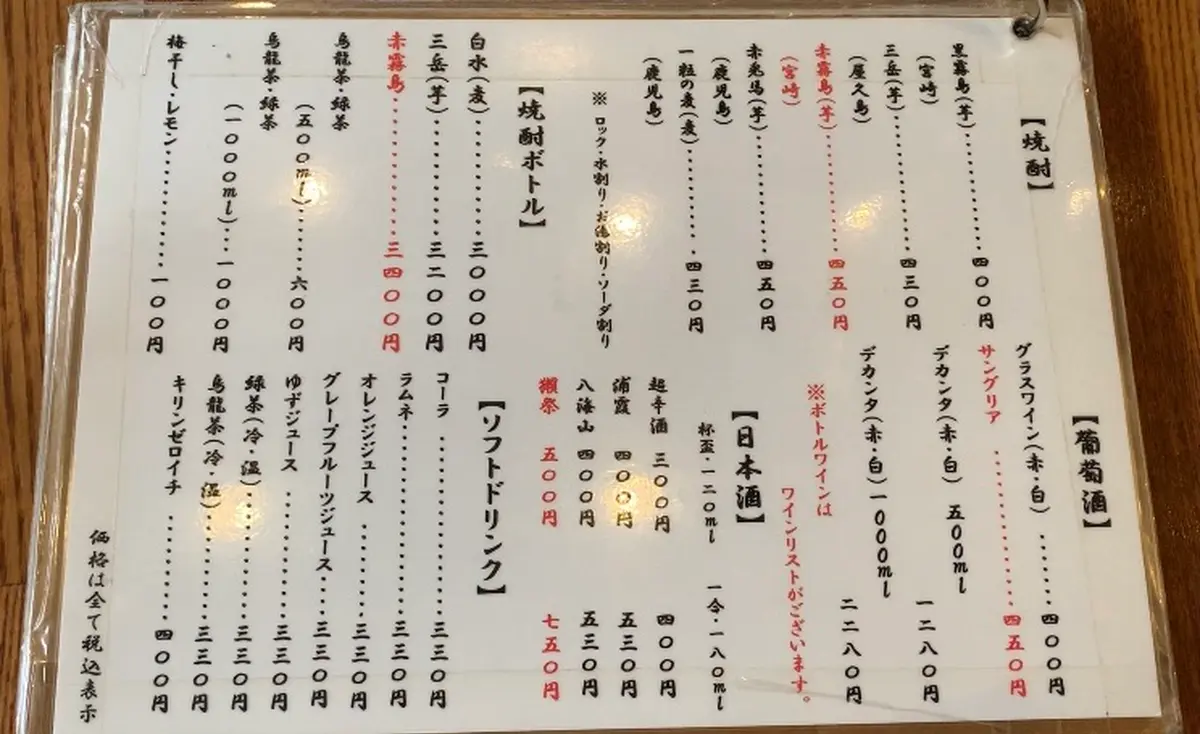 【焼酎】
黒霧島(芋)............四〇〇円
(宮崎)
三岳(芋)............四三〇円
(屋久島)
赤霧島(芋)............四五〇円
(宮崎)
赤兎馬(芋)............四五〇円
(鹿児島)
一粒の麦(麦)............四三〇円
(鹿児島)
※ ロック・水割り・お湯割り・ソーダ割り
【焼酎ボトル】
白水(麦)............三〇〇〇円
三岳(芋)............三二〇〇円
赤霧島............三四〇〇円
烏龍茶・緑茶
(五〇〇ml)......六〇〇円
烏龍茶・緑茶
(一〇〇〇ml)...一〇〇〇円
梅干し・レモン............一〇〇円
【葡萄酒】
グラスワイン(赤・白)........四〇〇円
サングリア............四五〇円
デカンタ(赤・白) 五〇〇ml 一二八〇円
デカンタ(赤・白)一〇〇〇ml 二二八〇円
※ボトルワインは
ワインリストがございます。
【日本酒】
杯盃・一二〇ml 一合・一八〇ml
超辛酒 三〇〇円 四〇〇円
浦霞 四〇〇円 五三〇円
八海山 四〇〇円 五三〇円
獺祭 五〇〇円 七五〇円
【ソフトドリンク】
コーラ............三三〇円
ラムネ............三三〇円
オレンジジュース............三三〇円
グレープフルーツジュース...三三〇円
ゆずジュース............三三〇円
緑茶(冷・温)............三三〇円
烏龍茶(冷・温)............三三〇円
キリンゼロイチ............四〇〇円
価格は全て税込表示